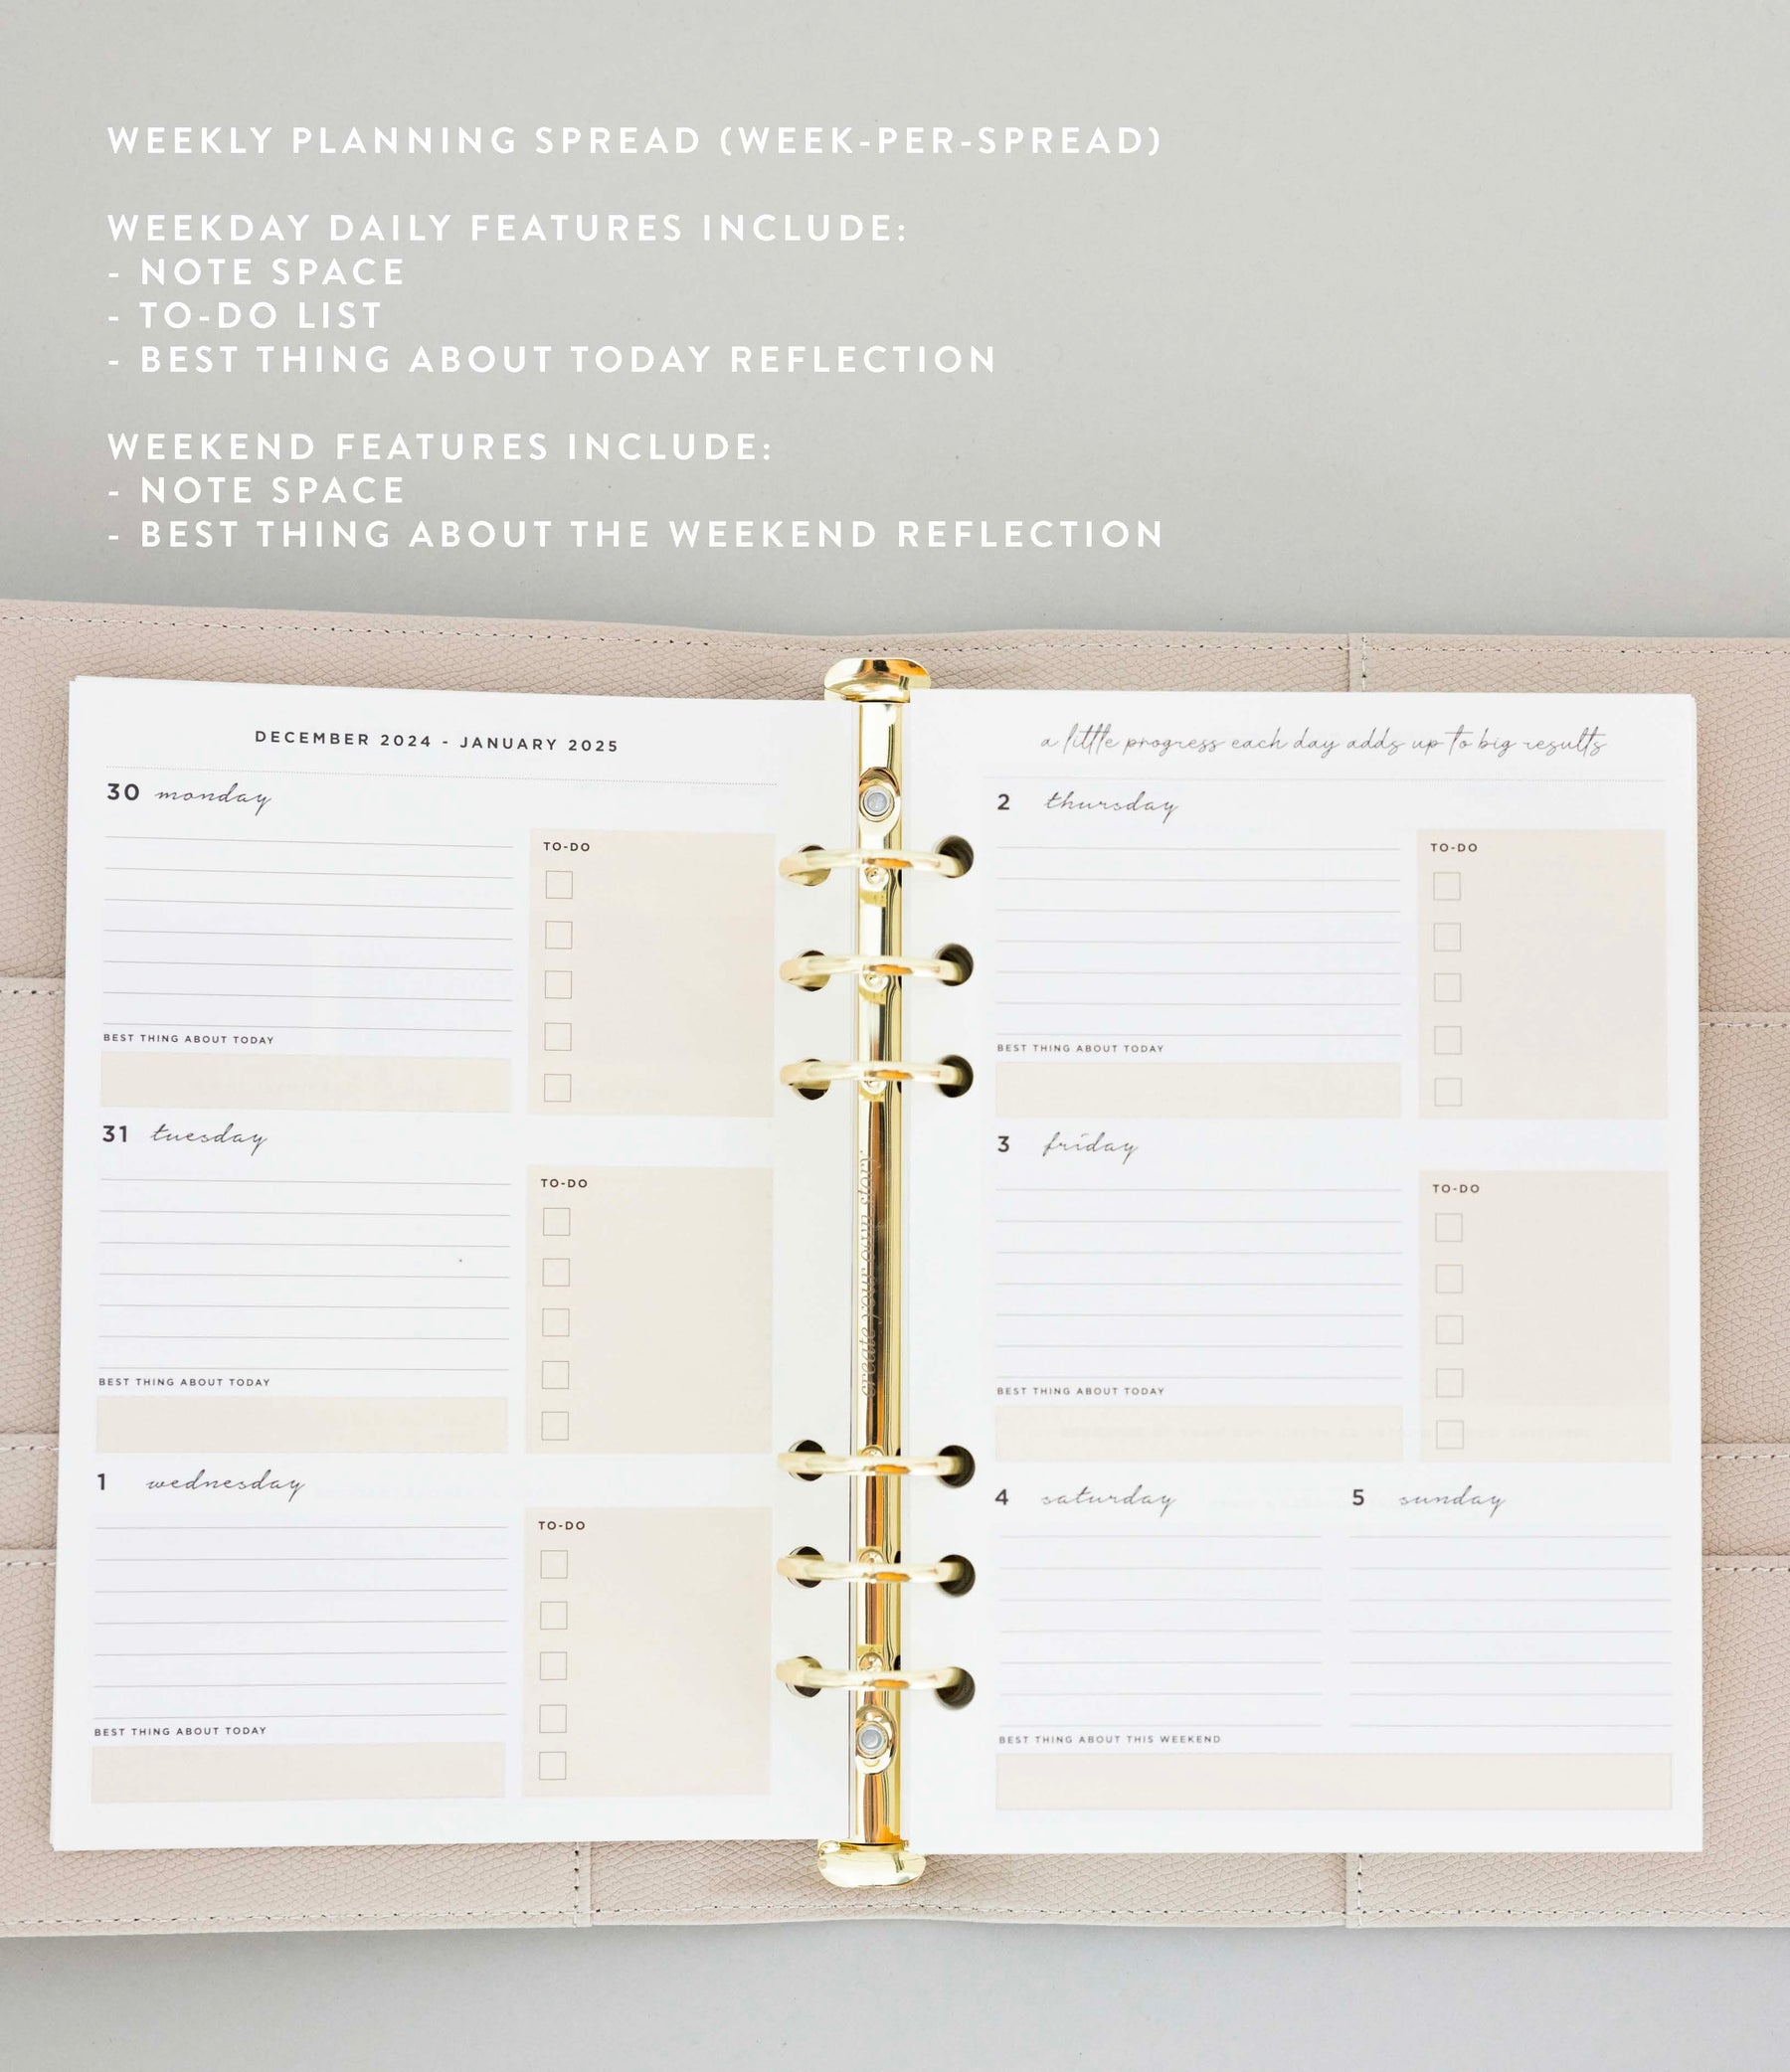 WEEKLY PLANNING SPREAD (WEEK-PER-SPREAD)
WEEKDAY DAILY FEATURES INCLUDE:
- NOTE SPACE
- TO-DO LIST
- BEST THING ABOUT TODAY REFLECTION
WEEKEND FEATURES INCLUDE:
- NOTE SPACE
- BEST THING ABOUT THE WEEKEND REFLECTION
DECEMBER 2024 - JANUARY 2025
30 monday
TO-DO
BEST THING ABOUT TODAY
31 tuesday
TO-DO
BEST THING ABOUT TODAY
1 wednesday
TO-DO
BEST THING ABOUT TODAY
create your own story
a little progress each day adds up to big results
2 thursday
TO-DO
BEST THING ABOUT TODAY
3 friday
TO-DO
BEST THING ABOUT TODAY
4 saturday
5 sunday
BEST THING ABOUT THIS WEEKEND